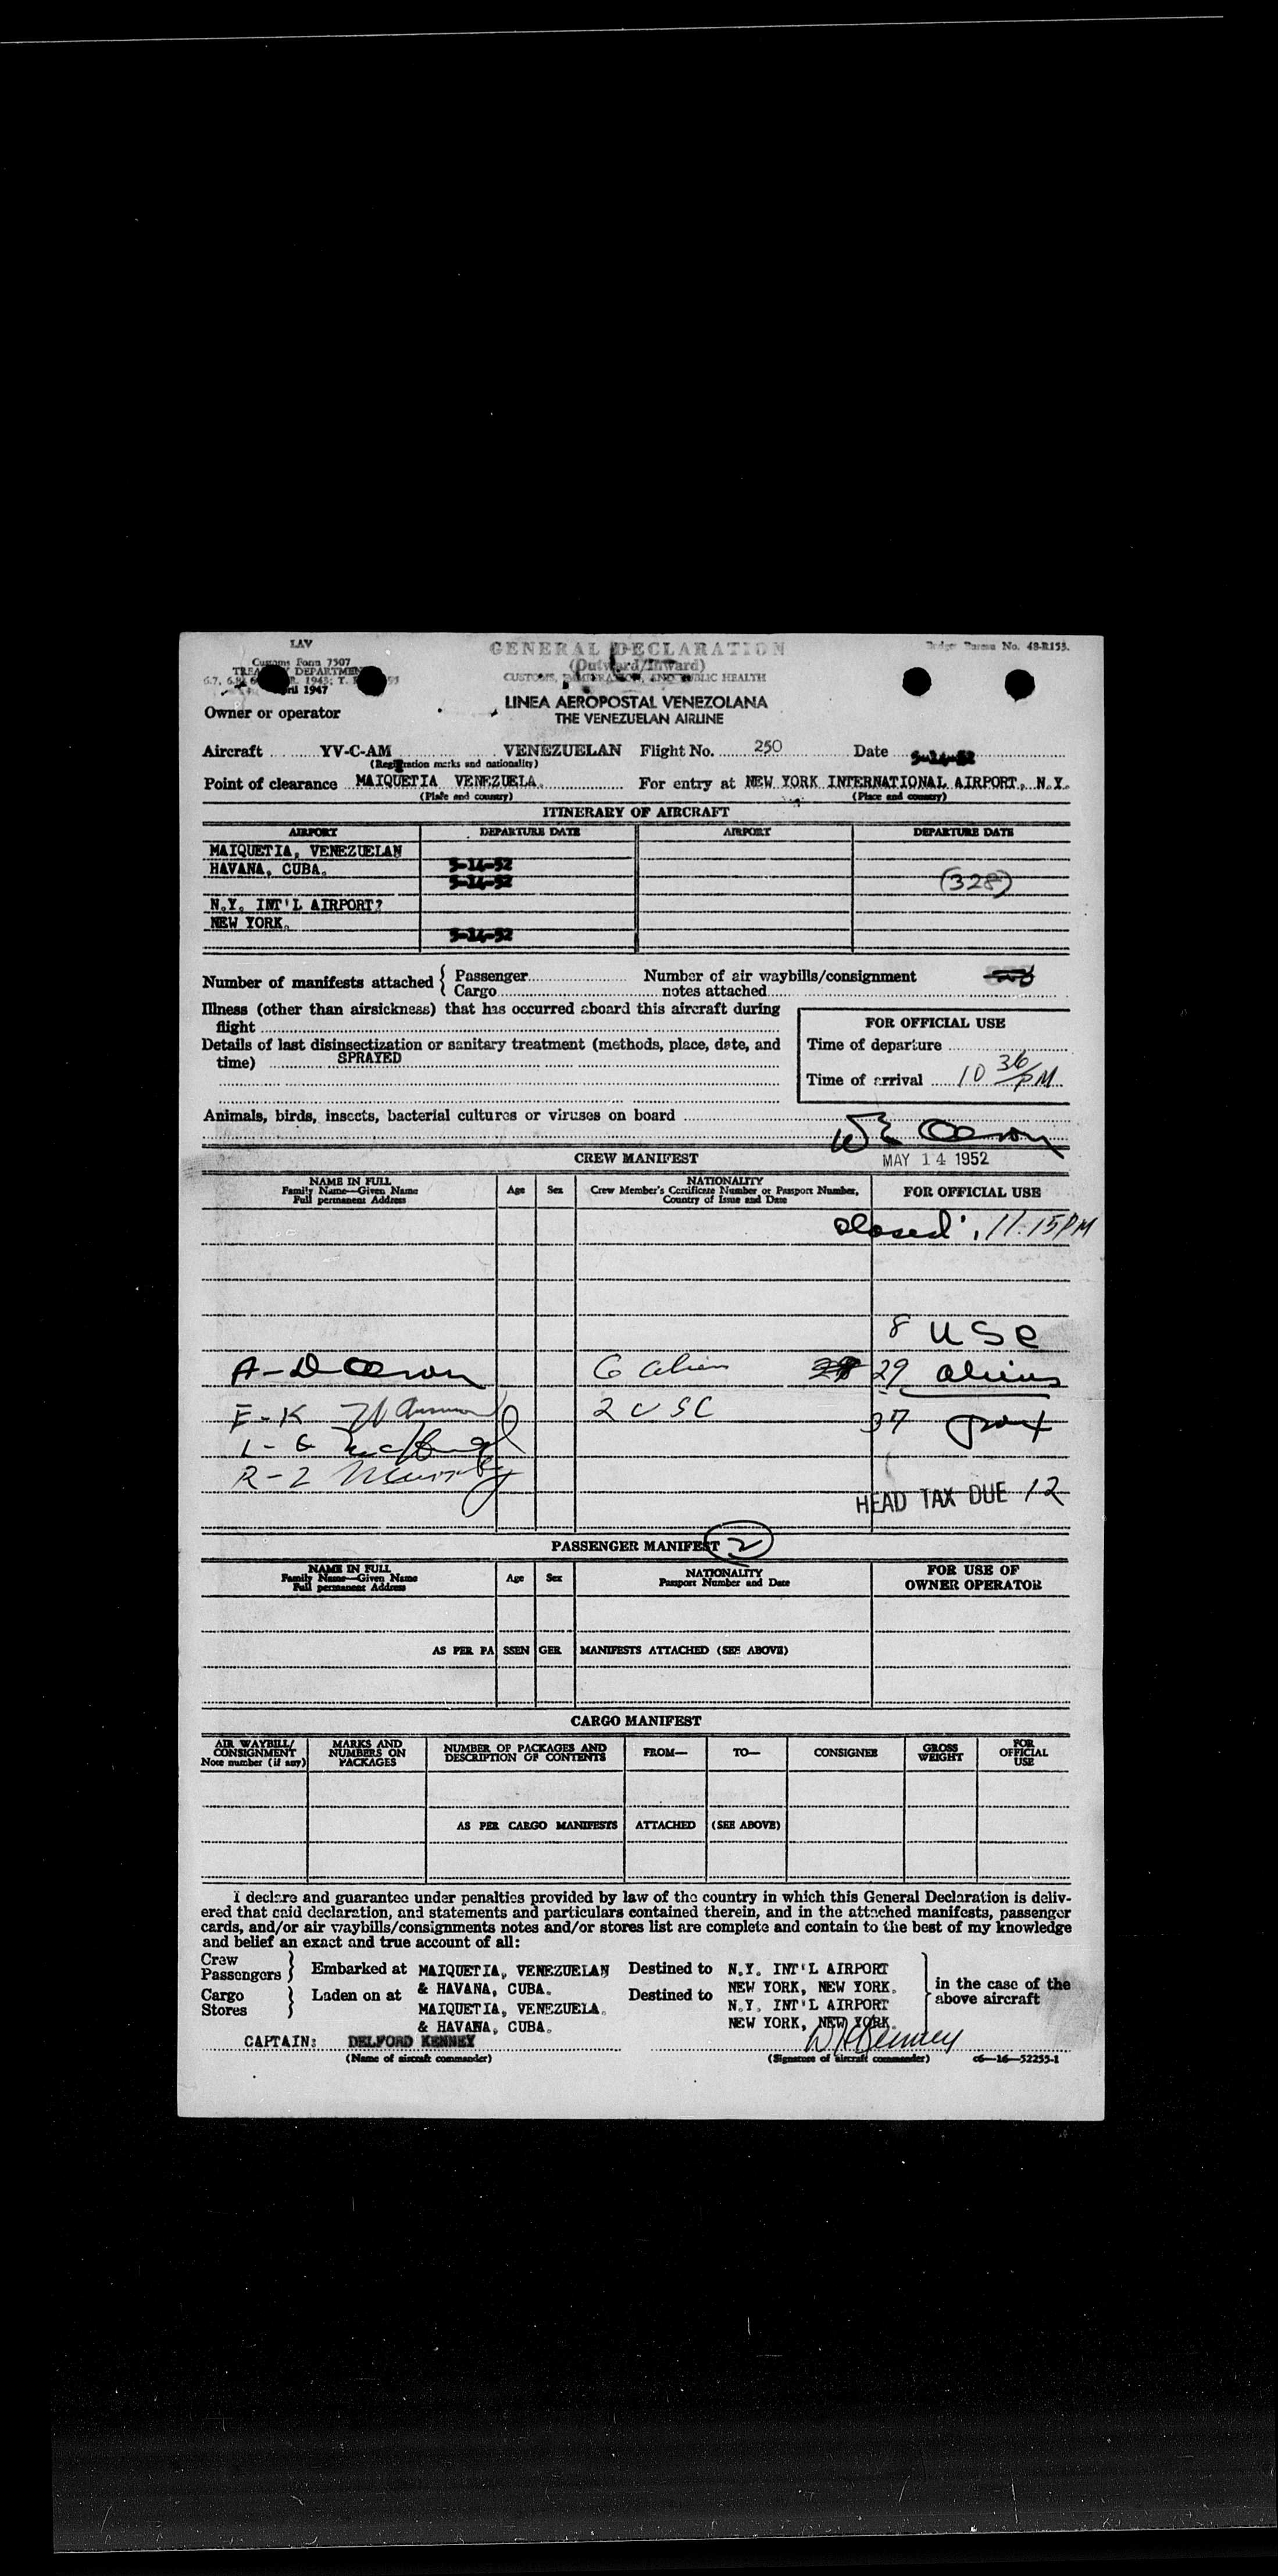 LAV
GENERAL DECLARATION
Budget Bureau No. 48-R153.
Customs Form 7507
(Outward/Inward)
TREASURY DEPARTMENT
CUSTOMS, IMMIGRATION, AND PUBLIC HEALTH
April 1947
LINEA AEROPOSTAL VENEZOLANA
THE VENEZUELAN AIRLINE
Owner or operator
Aircraft YV-C-AM VENEZUELAN Flight No. 250 Date 5-14-52
(Registration marks and nationality)
Point of clearance MAIQUETIA VENEZUELA. For entry at NEW YORK INTERNATIONAL AIRPORT, N.Y.
(Place and country) (Place and country)
ITINERARY OF AIRCRAFT
AIRPORT DEPARTURE DATE AIRPORT DEPARTURE DATE
MAIQUETIA, VENEZUELAN
HAVANA, CUBA. 5-14-52
5-14-52 (328)
N.Y. INT'L AIRPORT?
NEW YORK.
5-14-52
Number of manifests attached { Passenger Number of air waybills/consignment
Cargo notes attached
Illness (other than airsickness) that has occurred aboard this aircraft during
flight
FOR OFFICIAL USE
Details of last disinsectization or sanitary treatment (methods, place, date, and
Time of departure
time) SPRAYED
Time of arrival 10 36/PM
Animals, birds, insects, bacterial cultures or viruses on board
CREW MANIFEST
MAY 14 1952
NAME IN FULL
Family Name—Given Name
Full permanent Address
Age Sex
NATIONALITY
Crew Member's Certificate Number or Passport Number,
Country of Issue and Date
FOR OFFICIAL USE
closed 11.15PM
8 USC
A-D
6 alien 29 aliens
E-K
2 USC 37
L-Q
R-Z
HEAD TAX DUE 12
PASSENGER MANIFEST 2
NAME IN FULL
Family Name—Given Name
Full permanent Address
Age Sex
NATIONALITY
Passport Number and Date
FOR USE OF
OWNER OPERATOR
AS PER PA SSEN GER MANIFESTS ATTACHED (SEE ABOVE)
CARGO MANIFEST
AIR WAYBILL/
CONSIGNMENT
Note number (if any)
MARKS AND
NUMBERS ON
PACKAGES
NUMBER OF PACKAGES AND
DESCRIPTION OF CONTENTS
FROM— TO— CONSIGNEE
GROSS
WEIGHT
FOR
OFFICIAL
USE
AS PER CARGO MANIFESTS ATTACHED (SEE ABOVE)
I declare and guarantee under penalties provided by law of the country in which this General Declaration is deliv-
ered that said declaration, and statements and particulars contained therein, and in the attached manifests, passenger
cards, and/or air waybills/consignments notes and/or stores list are complete and contain to the best of my knowledge
and belief an exact and true account of all:
Crew
Passengers } Embarked at MAIQUETIA, VENEZUELAN Destined to N.Y. INT'L AIRPORT
& HAVANA, CUBA. NEW YORK, NEW YORK.
in the case of the
above aircraft
Cargo
Stores } Laden on at MAIQUETIA, VENEZUELA. Destined to N.Y. INT'L AIRPORT
& HAVANA, CUBA. NEW YORK, NEW YORK.
CAPTAIN: DELFORD KENNEY
(Name of aircraft commander) (Signature of aircraft commander) c6—16—52255-1